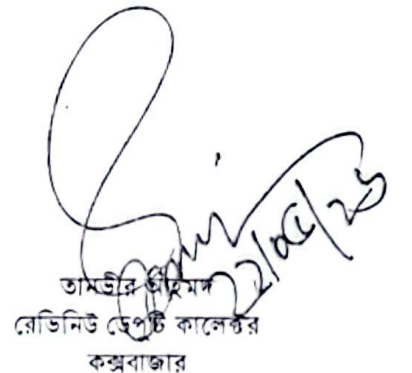 ২২/০৫/২৬
তামজীর আহমদ
রেভিনিউ ডেপুটি কালেক্টর
কক্সবাজার